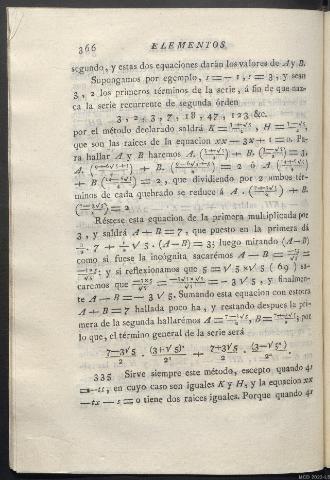 366 ELEMENTOS
segundo, y estas dos equaciones darán los valores de A y B.
Supongamos por exemplo, s = — 1, t = 3, y sean
3, 2 los primeros términos de la serie, á fin de que naz-
ca la serie recurrente de segunda órden
3, 2, 3, 7, 18, 47, 123 &c.
por el método declarado saldrá K = , H = ,
que son las raices de la equacion xx — 3x + 1 = 0. Pa-
ra hallar A y B haremos A. + B. = 3,
A. + B. = 2 ó A
+ B = 2, que dividiendo por 2 ambos tér-
minos de cada quebrado se reduce á A. + B.
= 2
Réstese esta equacion de la primera multiplicada por
3, y saldrá A + B = 7, que puesto en la primera dá
. 7 + √5. (A — B) = 3; luego mirando (A — B)
como si fuese la incógnita sacarémos A — B =
; y si reflexionamos que 5 = √5 × √5 (69) sa-
caremos que = = — 3√5, y finalmen-
te A — B = — 3√5. Sumando esta equacion con estotra
A + B = 7 hallada poco ha, y restando despues la pri-
mera de la segunda hallarémos A = , B = ; por
lo que, el término general de la serie será
7—3√5 . (3+√5)ⁿ + 7+3√5 . (3—√5ⁿ) .
2 2ⁿ 2 2ⁿ
335 Sirve siempre este método, escepto quando 4s
= —tt, en cuyo caso son iguales K y H, y la equacion xx
—tx — s = 0 tiene dos raices iguales. Porque quando 4s
MCD 2022-L5